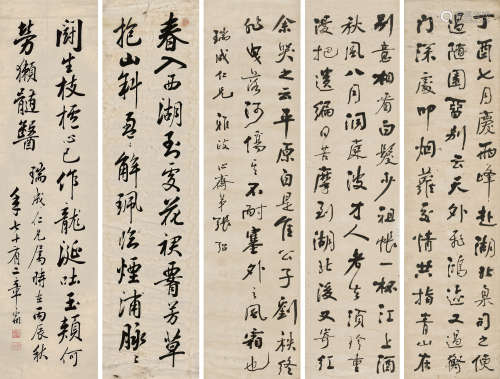 丁酉七月慶雨峰赴臬司之使
過随園留别云天外飛鴻迹又過衡
門深處叩烟蘿交情共指青山在
别意相看白髮少祖帳一杯江上酒
秋風八月洞庭波才人老去須珍重
漫把遺编日苦摩到湖北後又寄红
余哭之云平原自是佳公子劉秩終
非曳落河傷其不耐塞外之風霜也
瑞成仁兄雅政心齋弟張
春入西湖到處花裙腰芳草
抱山斜盈盈解珮临煙浦脉脉
生枝梧已作龍涎吐玉頰何
勞獺髓醫
瑞成仁兄属時在丙辰秋
年七十有二章霖